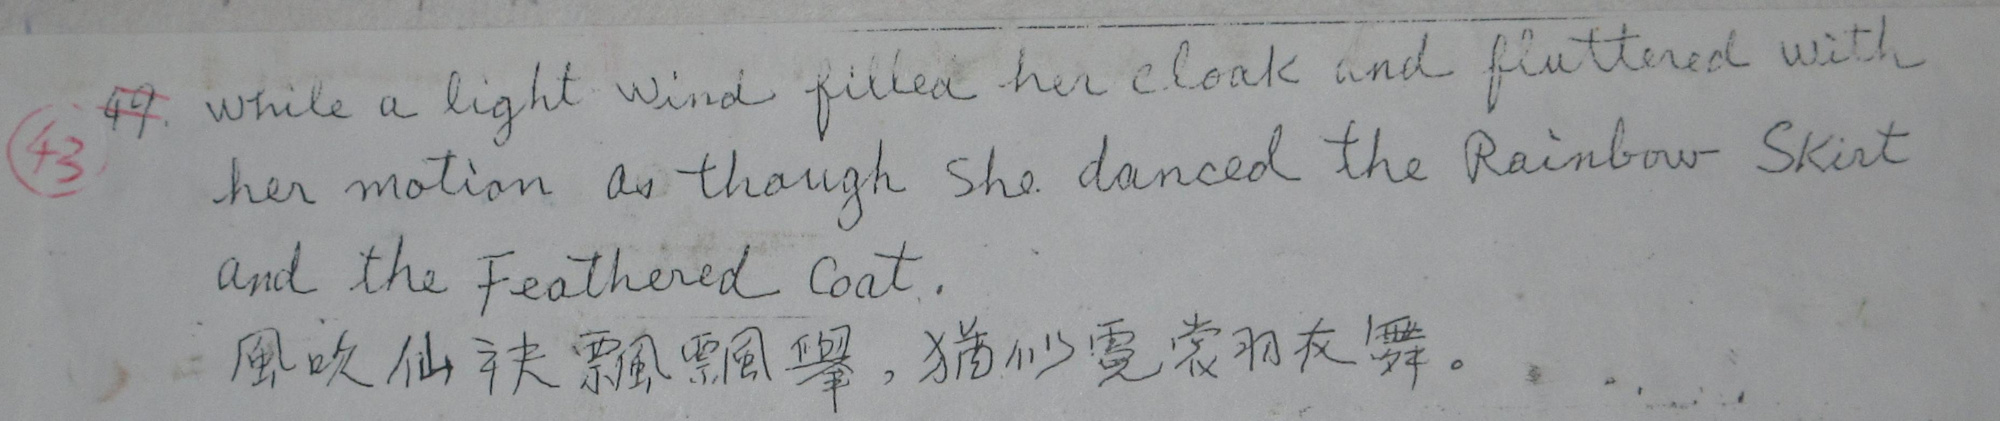 49. while a light wind filled her cloak and fluttered with
43
her motion as though she danced the Rainbow Skirt
and the Feathered Coat.
風吹仙袂飄飄舉,猶似霓裳羽衣舞。